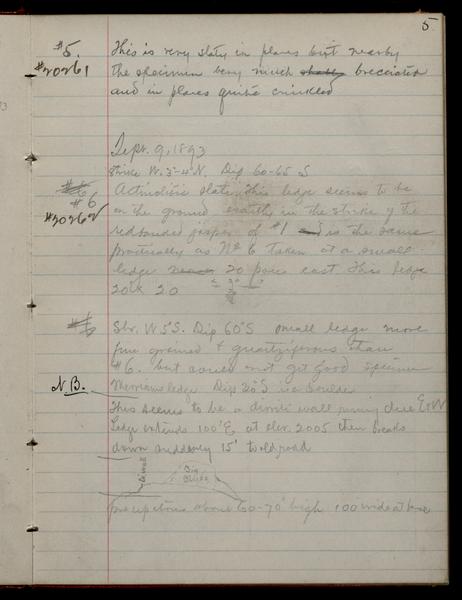 5
#5. This is very slaty in places but nearby
#20261 the specimen very much shaly brecciated
and in places quite crinkled
Sept. 9, 1893
Strike W. 3-4 N. Dip 60-65 S
#6 Actinolitic slate. This ledge seems to be
#6 on the ground exactly in the strike of the
#20262 red banded jasper of #1 and is the same
practically as No 6 taken at a small
ledge 20 paces east this ledge
20 x 20
#6 Str. W 5° S. Dip 60° S small ledge more
fine grained & quartziferous than
#6. but could not get good specimen
N.B. Merriams ledge Dips 20° S is a boulder
This seems to be a diorite wall running due E & W
Ledge extends 100' E at elev. 2005 then breaks
down suddenly 15' to old road
Big
precipitous above 60-70° high 100 wide at base